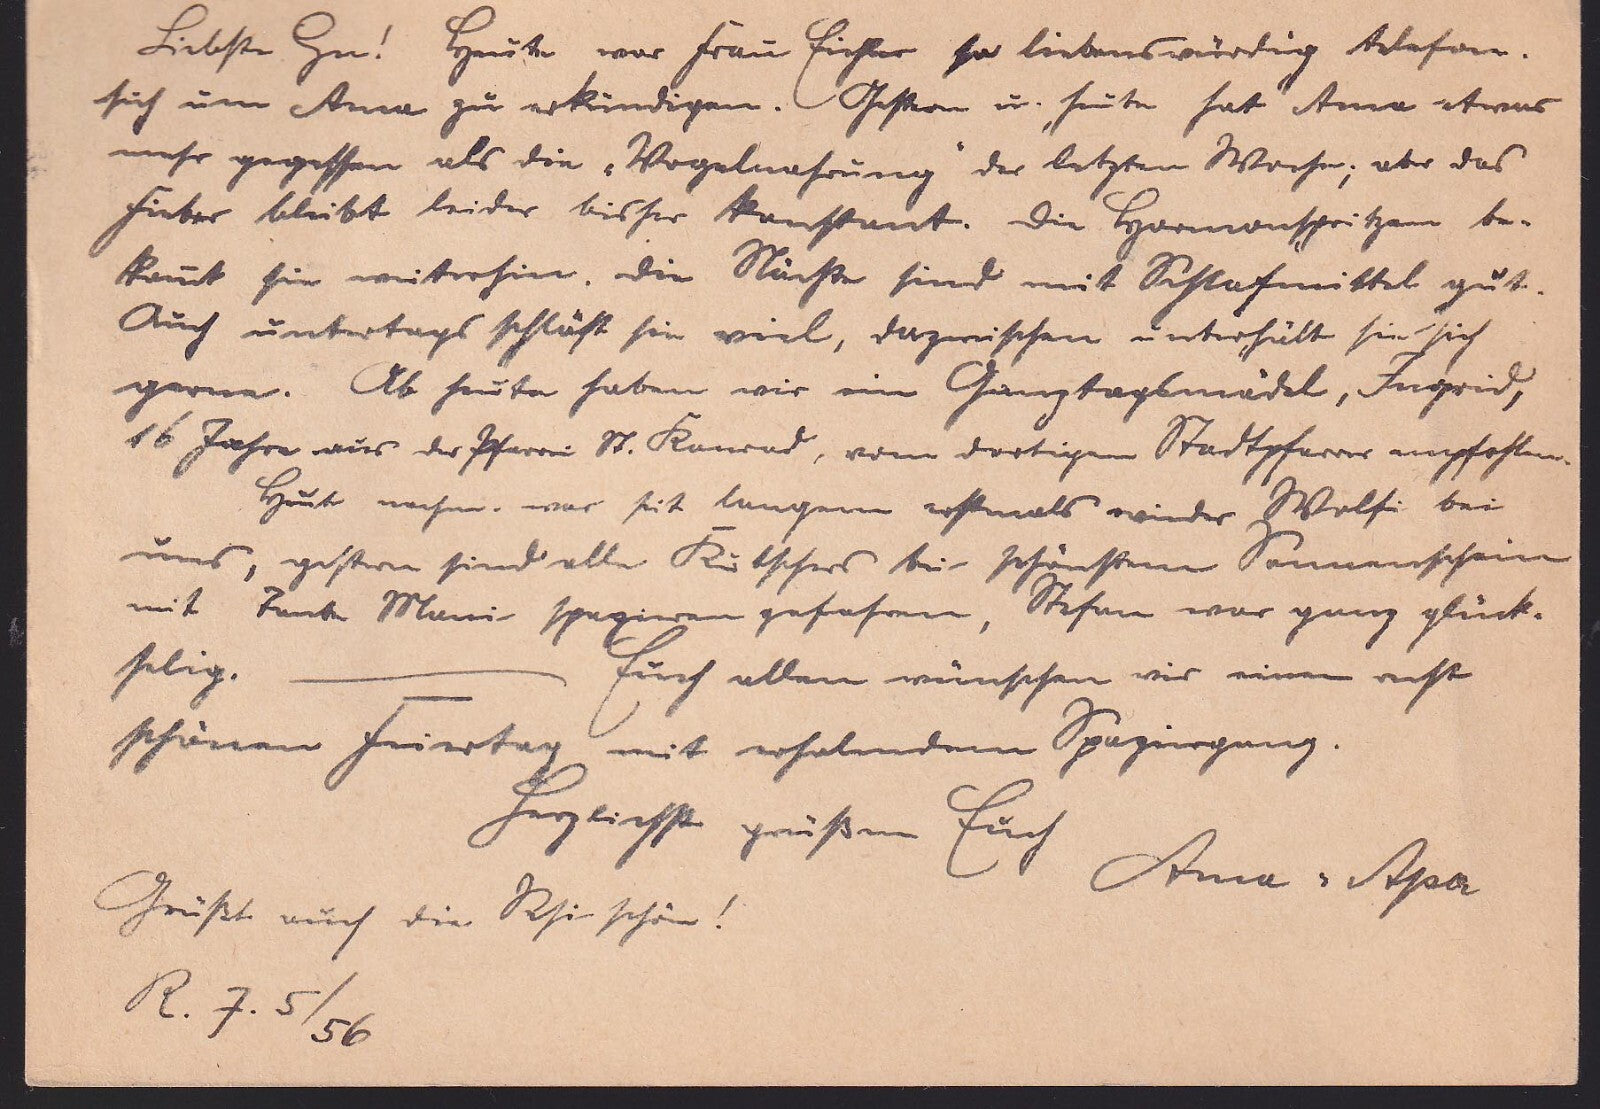 Liebste Gu! Heute war Frau Eichler so liebenswürdig telefon.
sich um Ama zu erkundigen. Gestern u. heute hat Ama etwas
mehr gegessen als die „Vogelnahrung" der letzten Woche; aber das
Fieber bleibt leider bisher konstant. Die Hormonspritzen be-
kommt sie weiterhin. Die Nächte sind mit Schlafmittel gut.
Auch untertags schläft sie viel, dazwischen unterhält sie sich
gerne. Ab heute haben wir ein Ganztagsmädel, Ingrid,
16 Jahre aus der Pfarrei St. Konrad, vom dortigen Stadtpfarrer empfohlen.
Heut nachm. war seit langem erstmals wieder Wolfi bei
uns, gestern sind alle Kutschers bei schönstem Sonnenschein
mit Tante Mani spazieren gefahren, Stefan war ganz glück-
selig. Euch allen wünschen wir einen recht
schönen Feiertag mit erholendem Spaziergang.
Herzlichst grüßen Euch
Ama + Apa
Grüßt auch die Resi schön!
R. 7. 5/56